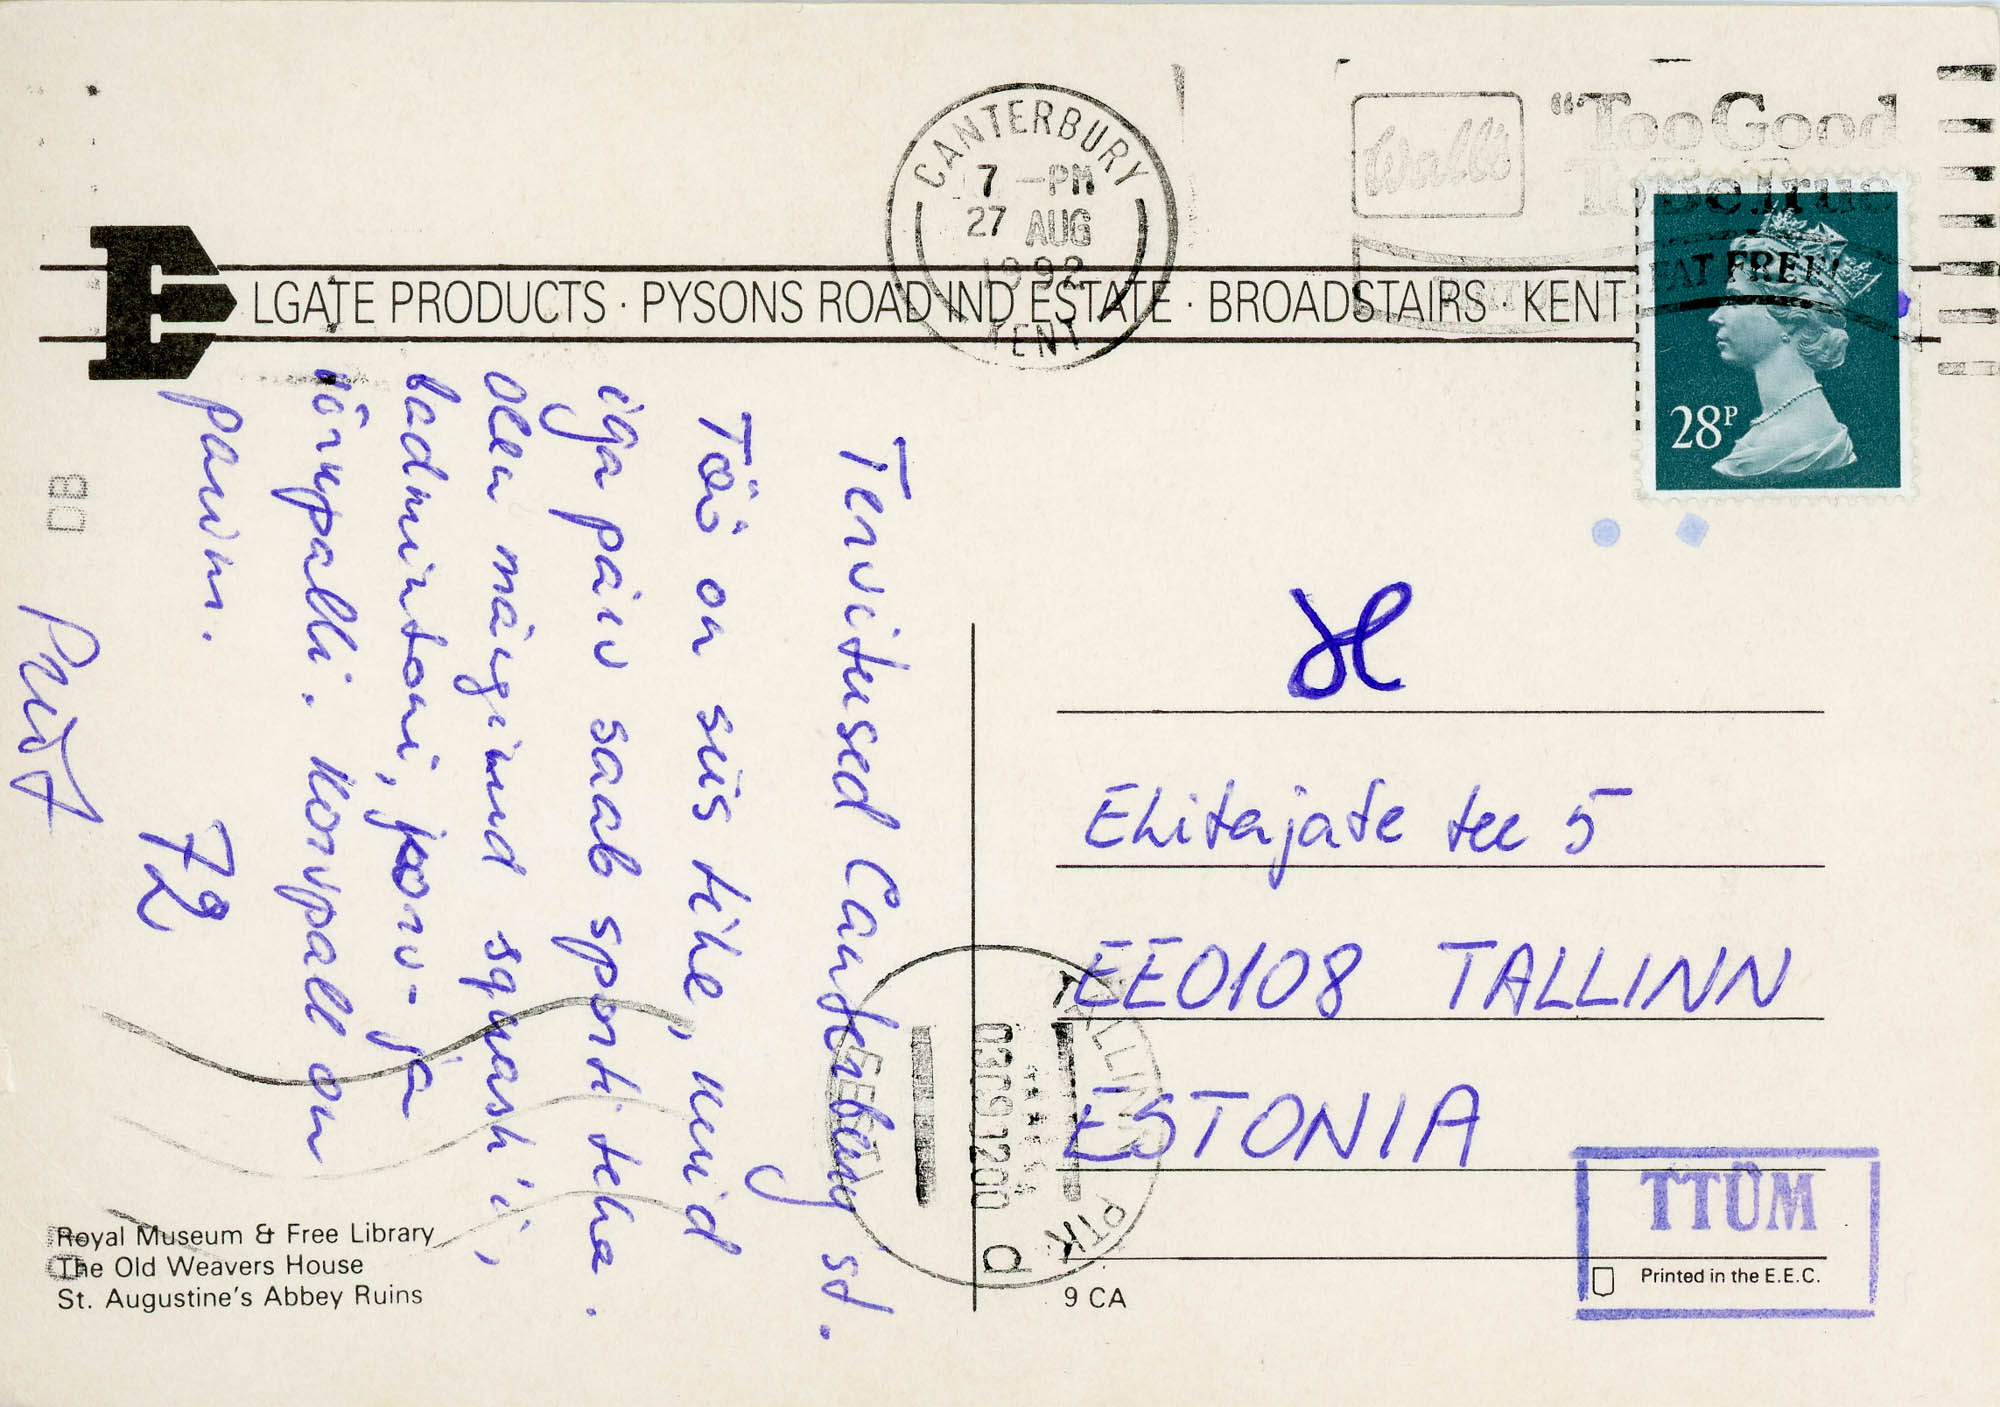 CANTERBURY
7 -PM
27 AUG
1992
KENT
Wall's
"Too Good
To Be True
FAT FREE!
ELGATE PRODUCTS · PYSONS ROAD IND ESTATE · BROADSTAIRS · KENT
28P
Tervitused Canterbury'st.
Töö on siis tihe, kuid
iga päiv saab sporti teha.
olen mängind squash'i,
badmintoni, korv- ja
võrkpalli. Korvpall on
parim.
Priit
72
Ehitajate tee 5
EE0108 TALLINN
ESTONIA
TALLINN PTK
EESTI
03091200
d
TTÜM
Royal Museum & Free Library
The Old Weavers House
St. Augustine's Abbey Ruins
9 CA
Printed in the E.E.C.